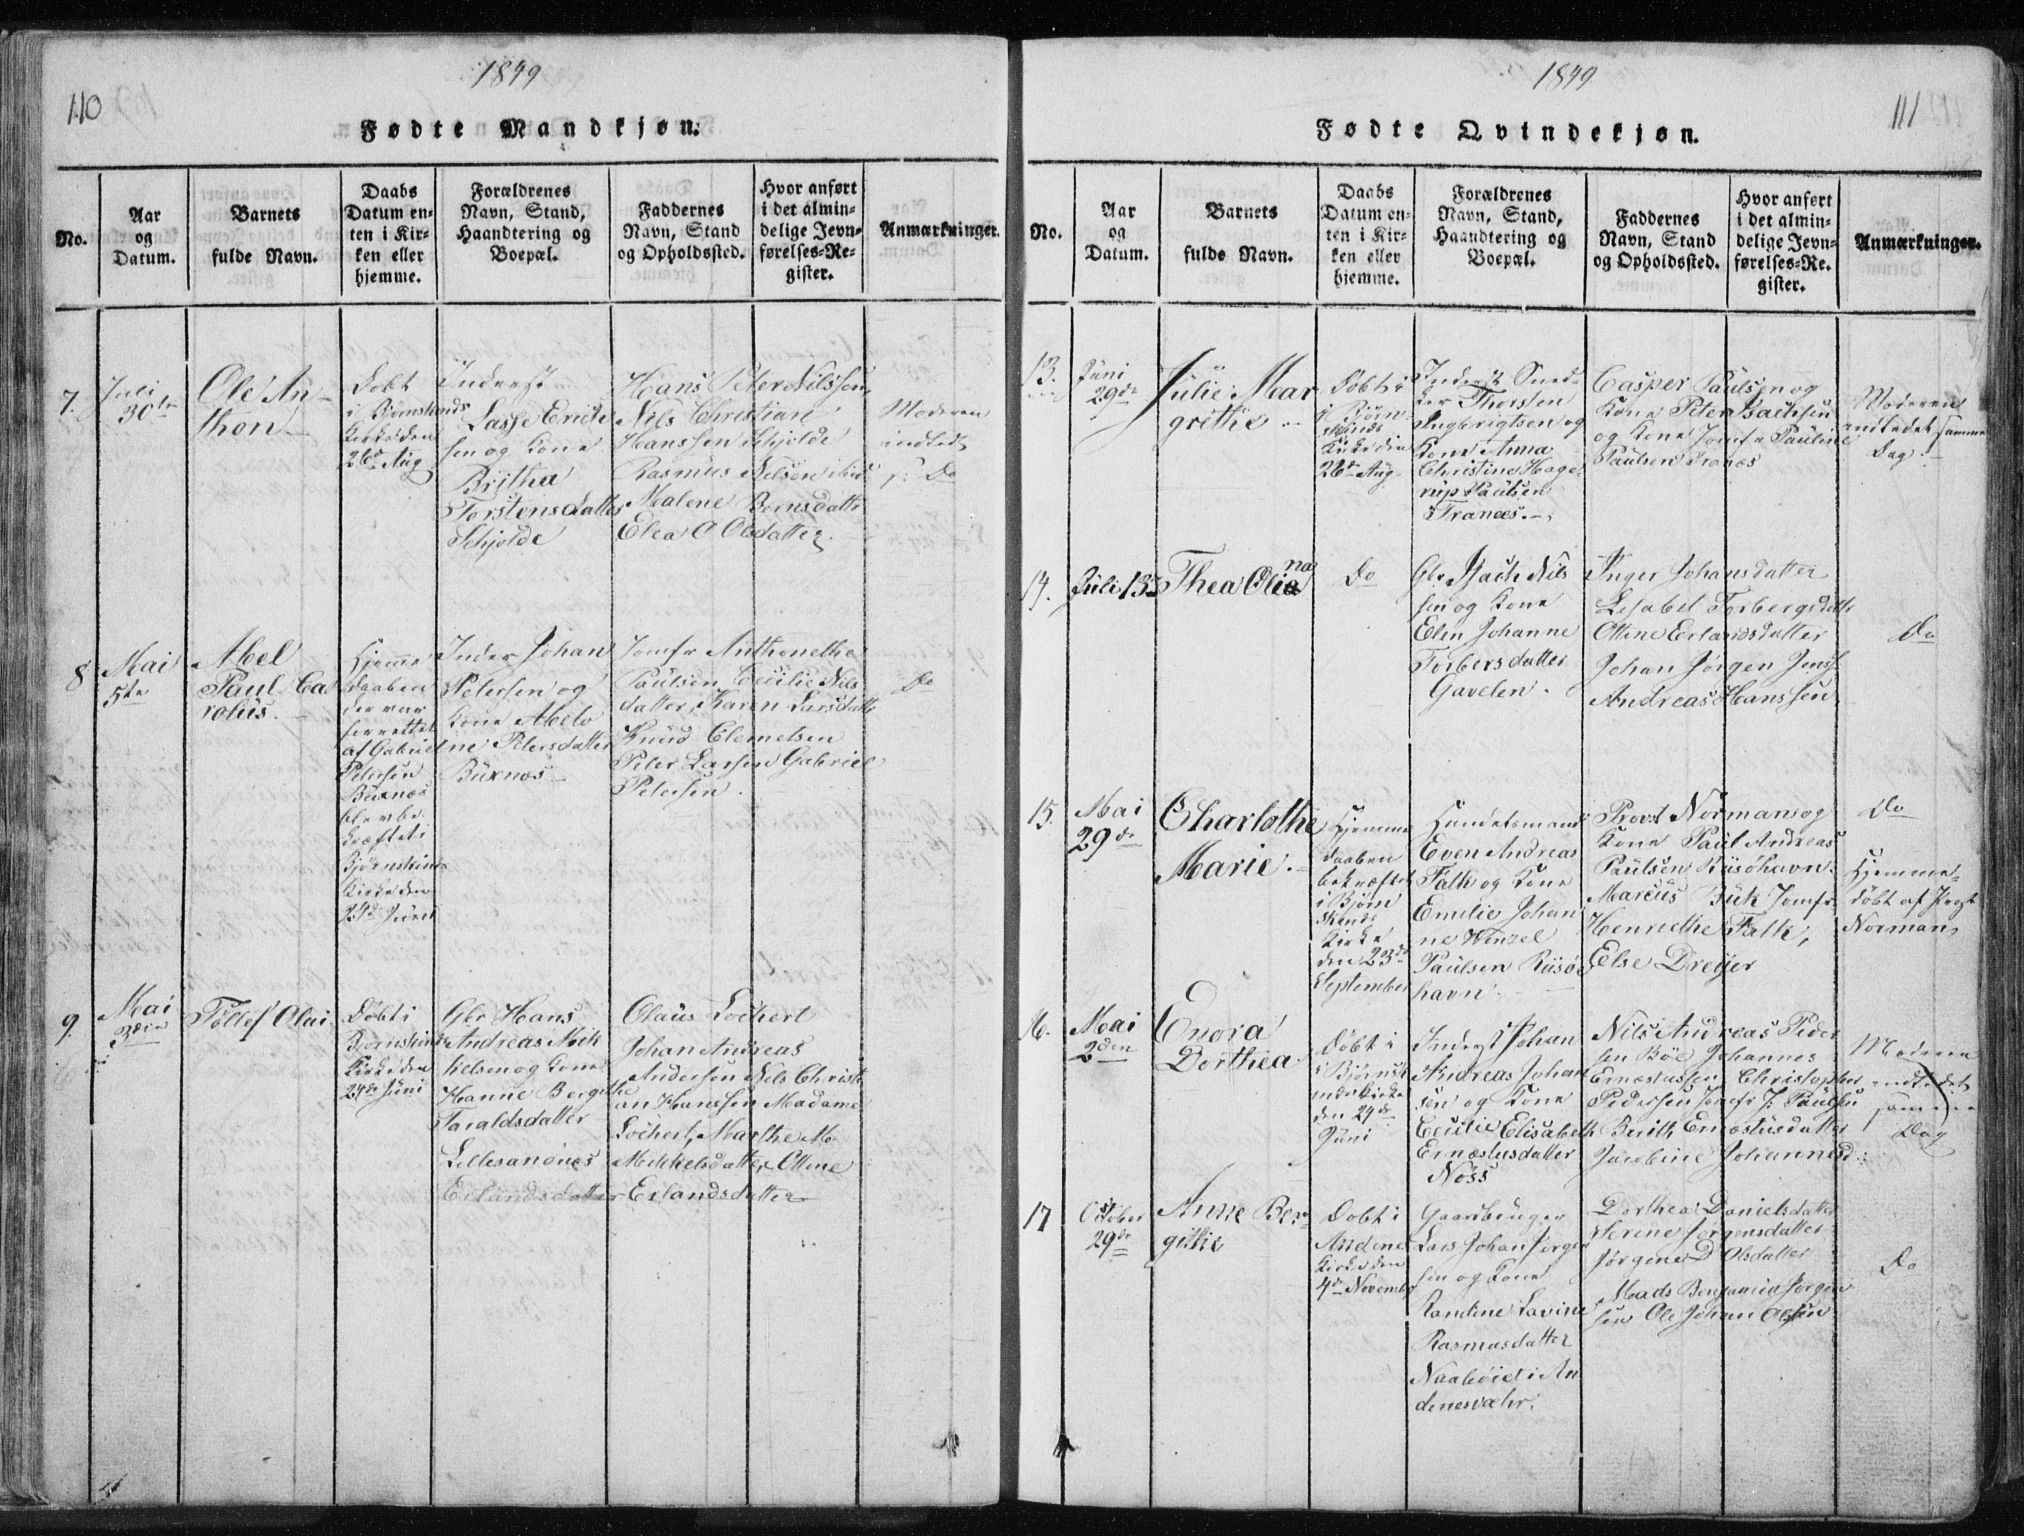 110
1849
Fødte Mandkjøn.
No.
Aar
og
Datum.
Barnets
fulde Navn.
Daabs
Datum en-
ten i Kir-
ken eller
hjemme.
Forældrenes
Navn, Stand,
Haandtering og
Boepæl.
Faddernes
Navn, Stand
og Opholdssted.
Hvor anført
i det almin-
delige Jevn-
førelses-Re-
gister.
Anmærkninger.
7.
Juli
30te
Ole An-
thon
Døbt
i Bjørnskinds
Kirke den
26de Aug
Inderst
Lasse Erich
sen og Kone
Britha
Torstensdatter
Schjolde
Hans Peter Nilssen,
Nils Christian
Hanssen Schjolde
Rasmus Nelson ibid
Malene Bernsdattr
Elea O Olsdatter.
Moderen
indledt
s: Do
8
Mai
5te
Abel
Paul Ca
rolus.
Hjemme
daaben
der var
forrettet
af Gabriel
Petersen
Buknæs
blev be
kræftet i
Bjørnskinds
Kirke den
24de Juni
Inder Johan
Petersen og
Kone Abelo
ne Petersdatter
Buknæs
Jomfr Anthonethe
Paulsen, Cecilie Nils
datter, Karen Larsdattr
Knud Clemetsen
Peter Larsen Gabriel
Petersen.
Do
9.
Mai
3den
Tollef Olai
Døbt i
Bjørnskinds
Kirke den
24de Juni
Gbr Hans
Andreas Mik
kelsen og Kone
Hanne Bergithe
Taraldsdatter
Lillesanónes
Erlandsdatter
Olaus Lochert
Johan Andreas
Andersen Nils Christi
an Hanssen Madame
Lochert, Marthe M
Mikkelsdatter Ottine
Erlandsdatter
1849
111
Fødte Qvindekjøn.
No.
Aar
og
Datum.
Barnets
fulde Navn.
Daabs
Datum en-
ten i Kir-
ken eller
hjemme.
Forældrenes
Navn, Stand,
Haandtering og
Boepæl.
Faddernes
Navn, Stand
og Opholdssted.
Hvor anført
i det almin-
delige Jevn-
førelses-Re-
gister.
Anmærkninger.
13.
Juni
29de
Julie Mar
grithe
Døbt i
Bjørn
skinds
Kirke den
26de Aug
Inderst Sned-
ker Thorsten
Ingbrigtsen og
Kone Anna
Christine Hage-
rup Paulsen
Tranæs.
Casper Paulsen og
Kone Peter Isachsen
og Kone Jomfr Pauline
Paulsen Tranæs
Moderen
indledet samme
Dag.
14.
Juli 13de
Thea Oliana
Do
Gbr Isach Nils
sen og Kone
Elen Johanne
Torbersdatter
Gavelen.
Inger Johansdatter
Lisabet Torbergsdattr
Ottine Erlandsdatter
Johan Jørgen Jenss
Andreas Hanssen
Do
15.
Mai
29de
Charlothe
Marie.
Hjemme
daaben
bekræftet
i Bjørn
skinds
Kirke
den 23de
September
Handelsmand
Even Andreas
Falk og Kone
Emilie Johan
ne Winzel
Paulsen Risø
havn
Provst Norman og
Kone Paul Andreas
Paulsen Risøhavn
Marcus Buk Jomfr
Henriethe Falk,
Else Dreyer
Do
Hjemme-
døbt af Prost
Norman,
16.
Mai
2den
Enora
Dorthea
Døbt i
Bjørnsk
inds Kirke
den 24de
Juni
Inderst Johan
Andreas Johan
sen og Kone
Cecilie Elisabeth
Ernæstusdatter
Nøss
Nils Andreas Peder
sen Böe Johannes
Ernæstussen, Christopher
Pedersen Jomfr J: Paulsen
Berith Ernæstusdatter
Jacobine Johannesd:
Moderen
indledet
samme
Dag
17
October
29de
Anne Ber
githe
Døbt i
Andenes
Kirke den
4de Novembr
Gaardbruger
Lars Johan Jørgen
sen og Kone
Randine Lavine
Rasmusdatter
Naahøiet i An
denesvær.
Dorthea Danielsdatter
Serine Jørgensdatter
Jørgine D Olsdatter
Mads Benjamin Jørgen
sen Ole Johan Olsen
Do